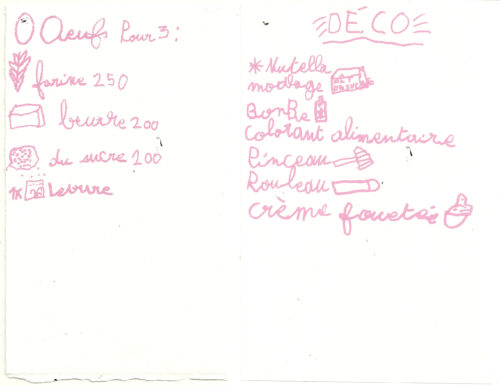 Oeufs Pour 3:
farine 250
beurre 200
du sucre 200
* Levure
DÉCO
* Nutella
modlage
BonBe
Colorant alimentaire
Pinceau
Rouleau
crème foueteé